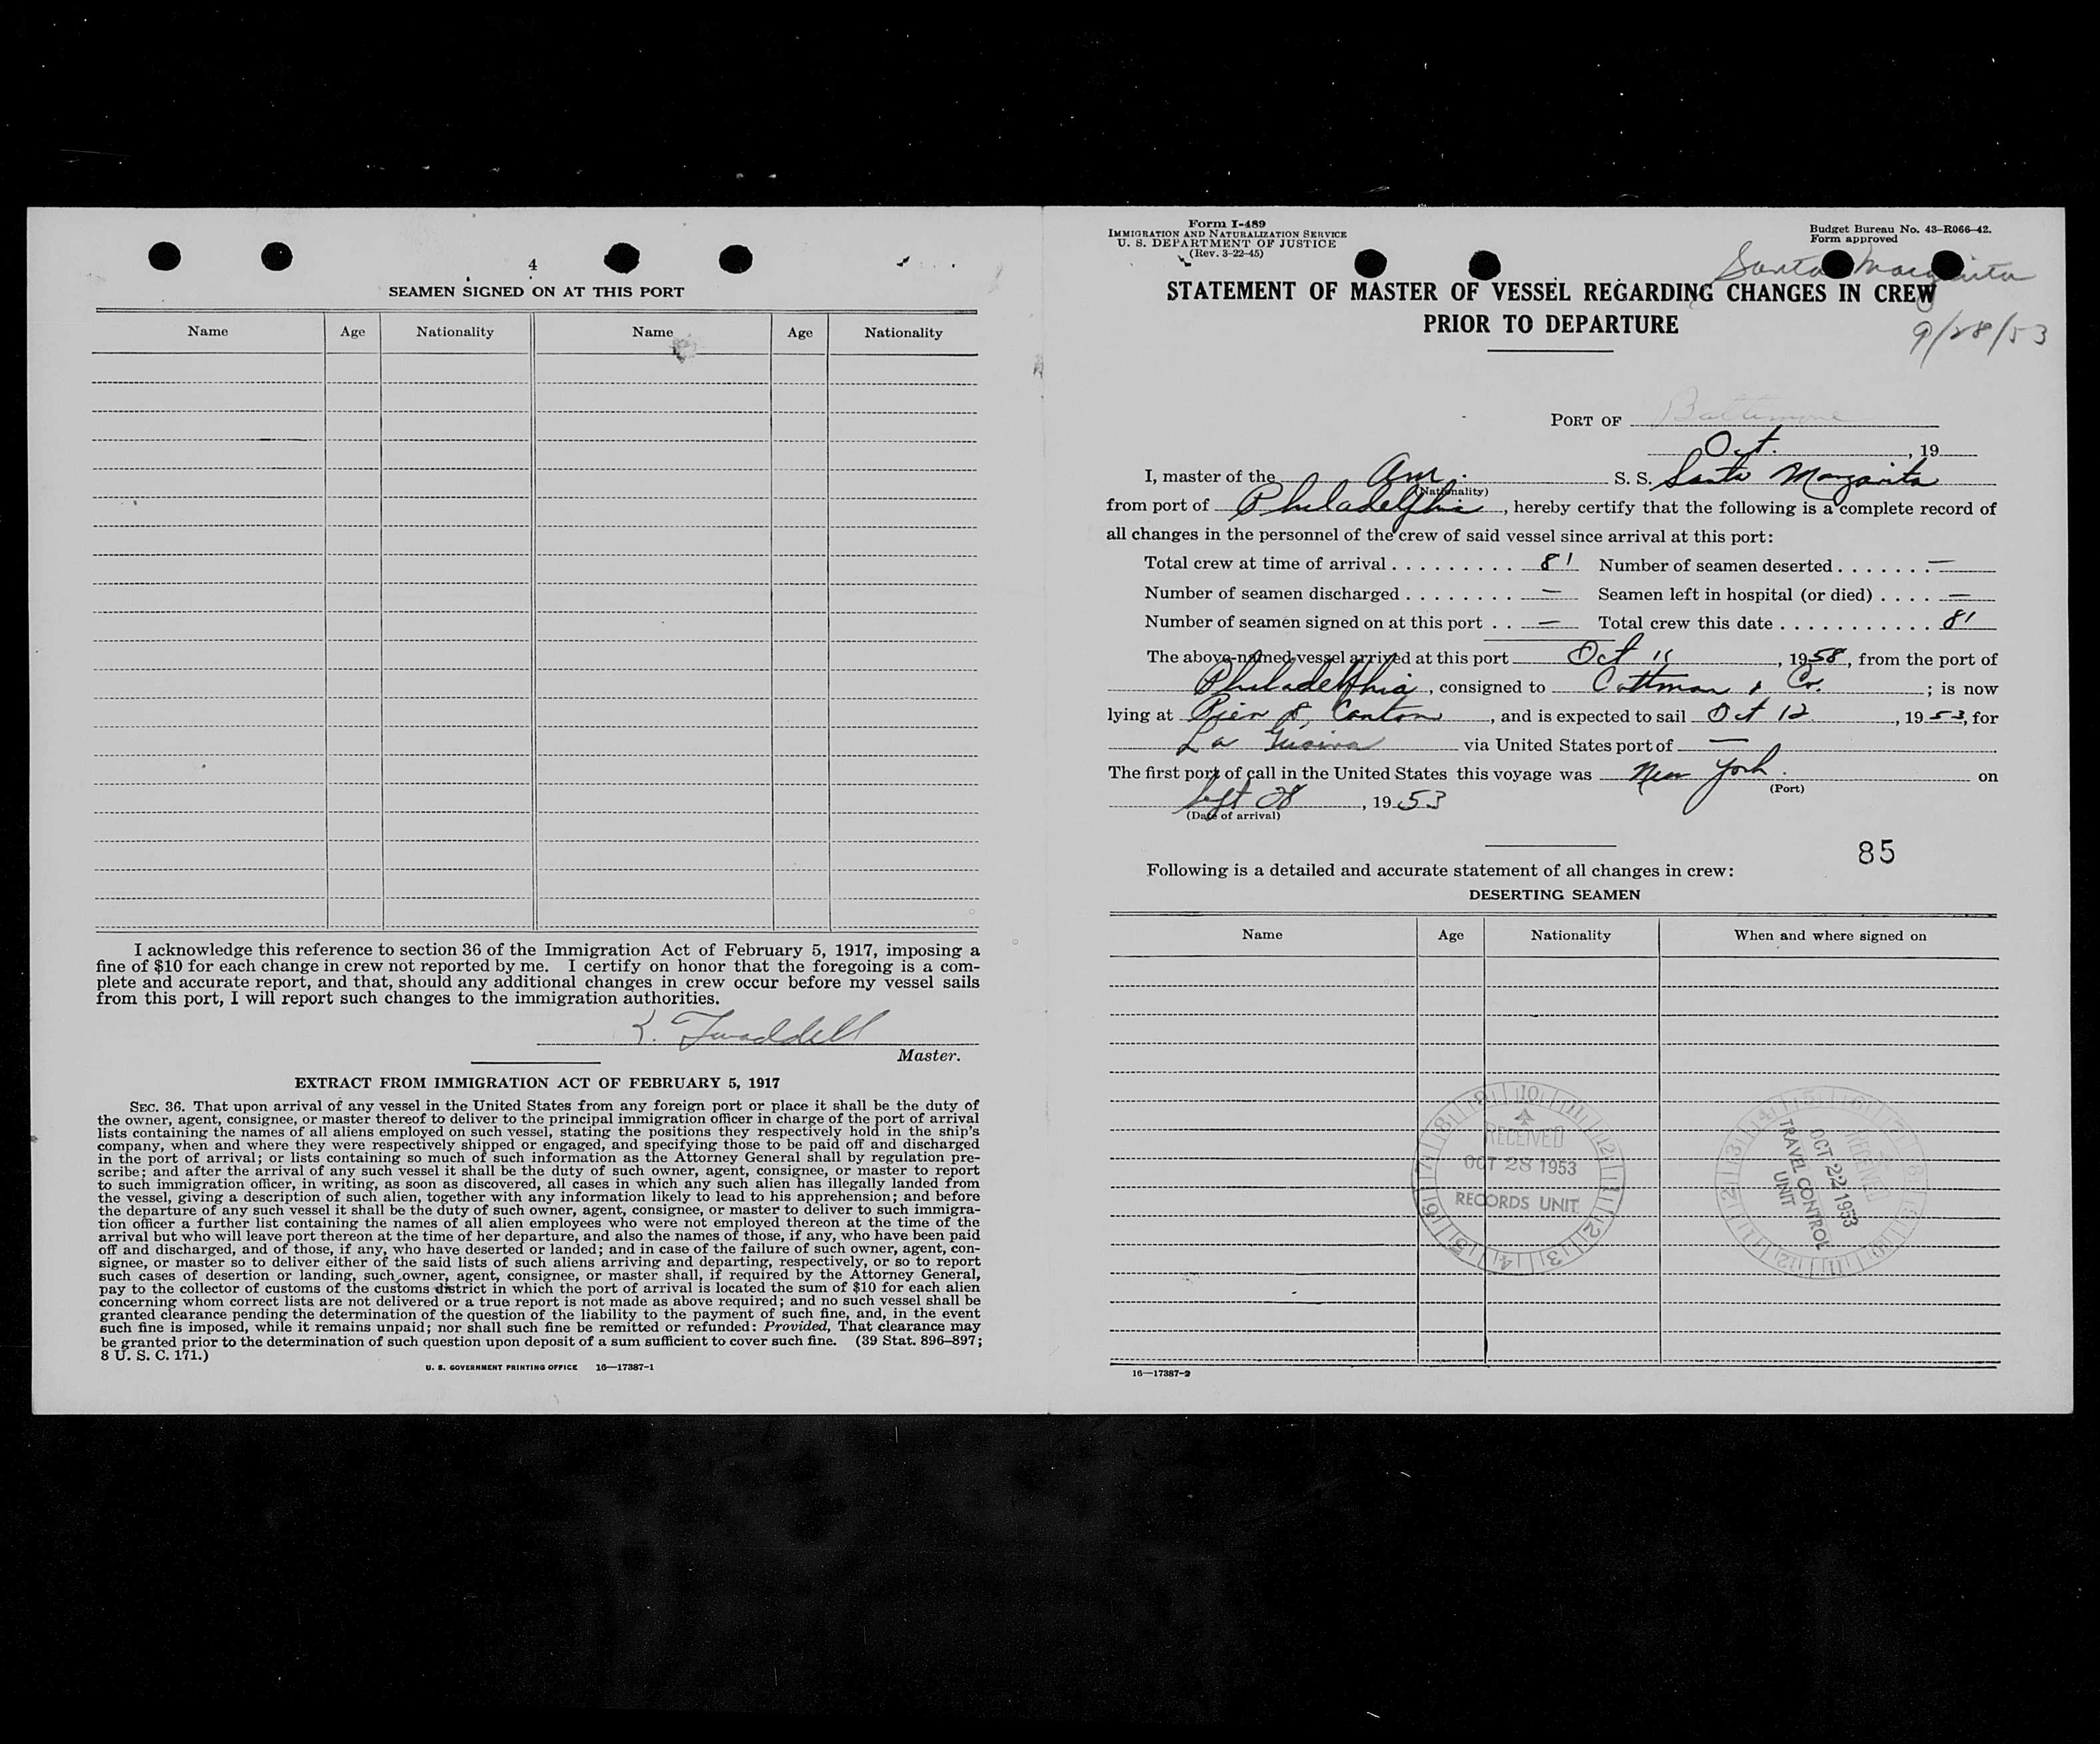 4
SEAMEN SIGNED ON AT THIS PORT
Name Age Nationality Name Age Nationality
I acknowledge this reference to section 36 of the Immigration Act of February 5, 1917, imposing a
fine of $10 for each change in crew not reported by me. I certify on honor that the foregoing is a com-
plete and accurate report, and that, should any additional changes in crew occur before my vessel sails
from this port, I will report such changes to the immigration authorities.
Twaddell
Master.
EXTRACT FROM IMMIGRATION ACT OF FEBRUARY 5, 1917
SEC. 36. That upon arrival of any vessel in the United States from any foreign port or place it shall be the duty of
the owner, agent, consignee, or master thereof to deliver to the principal immigration officer in charge of the port of arrival
lists containing the names of all aliens employed on such vessel, stating the positions they respectively hold in the ship's
company, when and where they were respectively shipped or engaged, and specifying those to be paid off and discharged
in the port of arrival; or lists containing so much of such information as the Attorney General shall by regulation pre-
scribe; and after the arrival of any such vessel it shall be the duty of such owner, agent, consignee, or master to report
to such immigration officer, in writing, as soon as discovered, all cases in which any such alien has illegally landed from
the vessel, giving a description of such alien, together with any information likely to lead to his apprehension; and before
the departure of any such vessel it shall be the duty of such owner, agent, consignee, or master to deliver to such immigra-
tion officer a further list containing the names of all alien employees who were not employed thereon at the time of the
arrival but who will leave port thereon at the time of her departure, and also the names of those, if any, who have been paid
off and discharged, and of those, if any, who have deserted or landed; and in case of the failure of such owner, agent, con-
signee, or master so to deliver either of the said lists of such aliens arriving and departing, respectively, or so to report
such cases of desertion or landing, such owner, agent, consignee, or master shall, if required by the Attorney General,
pay to the collector of customs of the customs district in which the port of arrival is located the sum of $10 for each alien
concerning whom correct lists are not delivered or a true report is not made as above required; and no such vessel shall be
granted clearance pending the determination of the question of the liability to the payment of such fine, and, in the event
such fine is imposed, while it remains unpaid; nor shall such fine be remitted or refunded: Provided, That clearance may
be granted prior to the determination of such question upon deposit of a sum sufficient to cover such fine. (39 Stat. 896–897;
8 U. S. C. 171.)
U. S. GOVERNMENT PRINTING OFFICE 16—17387-1
Form I-489
IMMIGRATION AND NATURALIZATION SERVICE
U. S. DEPARTMENT OF JUSTICE
(Rev. 3-22-45)
Budget Bureau No. 43-R066-42.
Form approved
Santa Margarita
STATEMENT OF MASTER OF VESSEL REGARDING CHANGES IN CREW
PRIOR TO DEPARTURE
9/28/53
PORT OF Baltimore
Oct. , 19
I, master of the Am. S. S. Santa Margarita
(Nationality)
from port of Philadelphia, hereby certify that the following is a complete record of
all changes in the personnel of the crew of said vessel since arrival at this port:
Total crew at time of arrival . . . . . . . . . . 81 Number of seamen deserted . . . . . . . —
Number of seamen discharged . . . . . . . . — Seamen left in hospital (or died) . . . . —
Number of seamen signed on at this port . . — Total crew this date . . . . . . . . . . . . 81
The above-named vessel arrived at this port Oct 11, 1958, from the port of
Philadelphia, consigned to Cottman & Co. ; is now
lying at Pier 8, Canton, and is expected to sail Oct 12, 1953, for
La Guaira via United States port of —
The first port of call in the United States this voyage was New York. on
(Port)
Sept 28, 1953
(Date of arrival)
85
Following is a detailed and accurate statement of all changes in crew:
DESERTING SEAMEN
Name Age Nationality When and where signed on
RECEIVED
OCT 28 1953
RECORDS UNIT
RECEIVED
OCT 22 1953
TRAVEL CONTROL
UNIT
16—17387-2